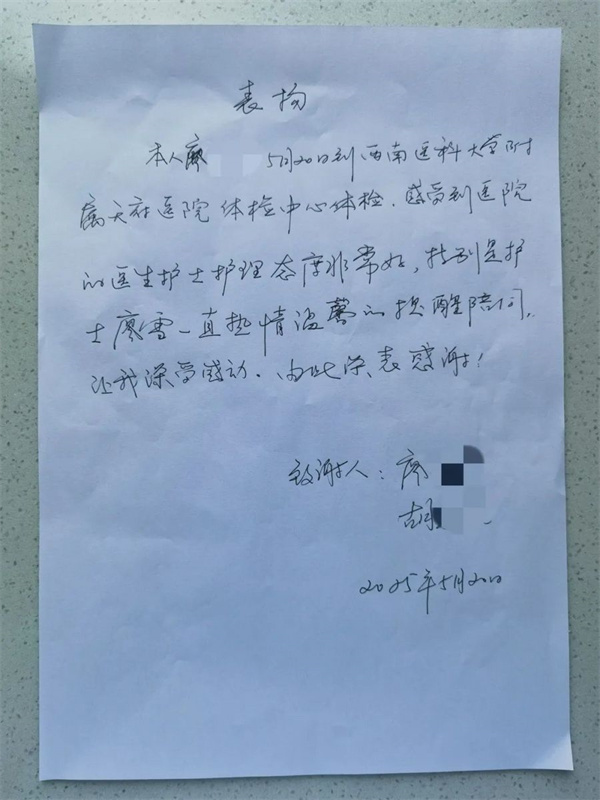 表扬
本人廖 5月20日到西南医科大学附
属天府医院体检中心体检，感受到医院
的医生护士护理态度非常好，特别是护
士廖雪一直热情温馨的提醒陪同，
让我深受感动，由此深表感谢！
致谢人：廖
胡
2025年5月20日